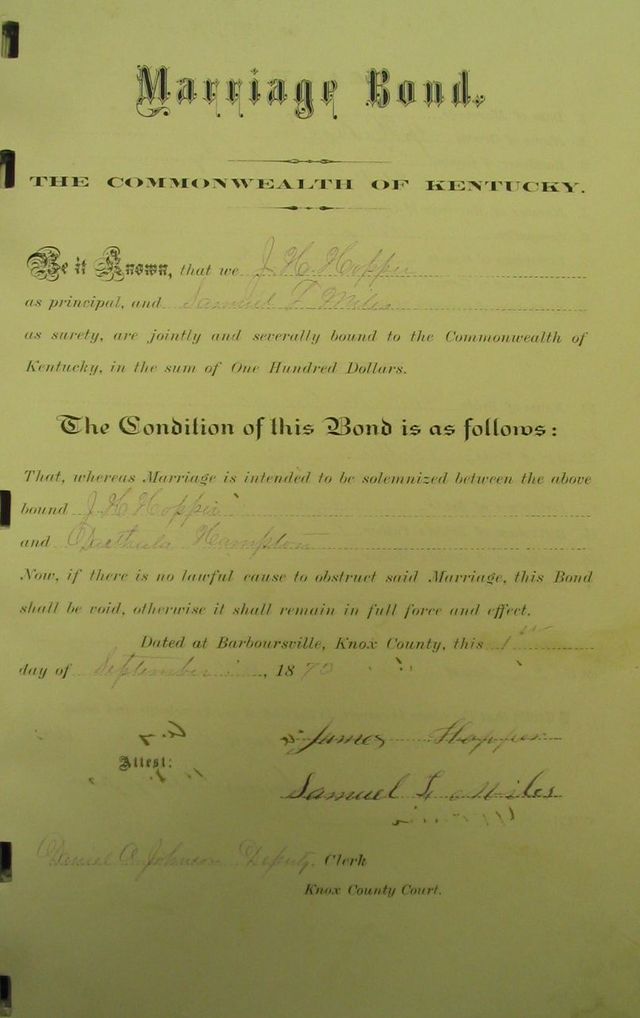 Marriage Bond.
THE COMMONWEALTH OF KENTUCKY.
Be it Known, that we J. H. Hopper
as principal, and Samuel F Miles
as surety, are jointly and severally bound to the Commonwealth of
Kentucky, in the sum of One Hundred Dollars.
The Condition of this Bond is as follows:
That, whereas Marriage is intended to be solemnized between the above
bound J H Hopper
and Hampton
Now, if there is no lawful cause to obstruct said Marriage, this Bond
shall be void, otherwise it shall remain in full force and effect.
Dated at Barboursville, Knox County, this 1st
day of September, 1870
James Hopper
Attest:
Samuel F Miles
Daniel A Johnson Deputy Clerk
Knox County Court.